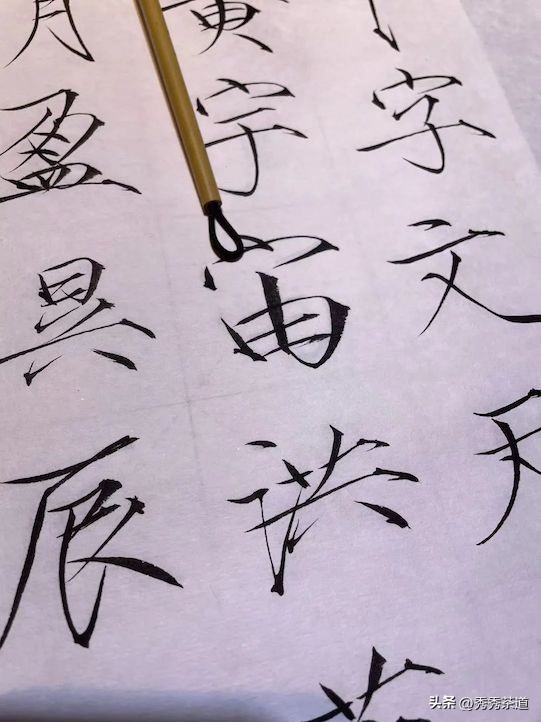 字文天
黄宇宙洪
月盈昃辰
头条 @秀秀茶道